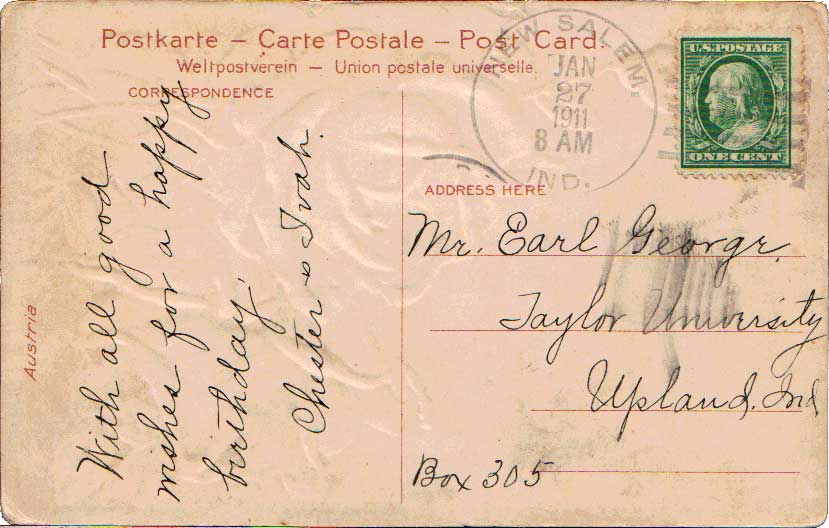 Postkarte – Carte Postale – Post Card.
Weltpostverein – Union postale universelle.
CORRESPONDENCE
NEW SALEM.
JAN
27
1911
8 AM
IND.
U.S. POSTAGE
ONE CENT
ADDRESS HERE
Mr. Earl George.
Taylor University
Upland, Ind
Box 305
With all good
wishes for a happy
birthday.
Chester & Ivah.
Austria